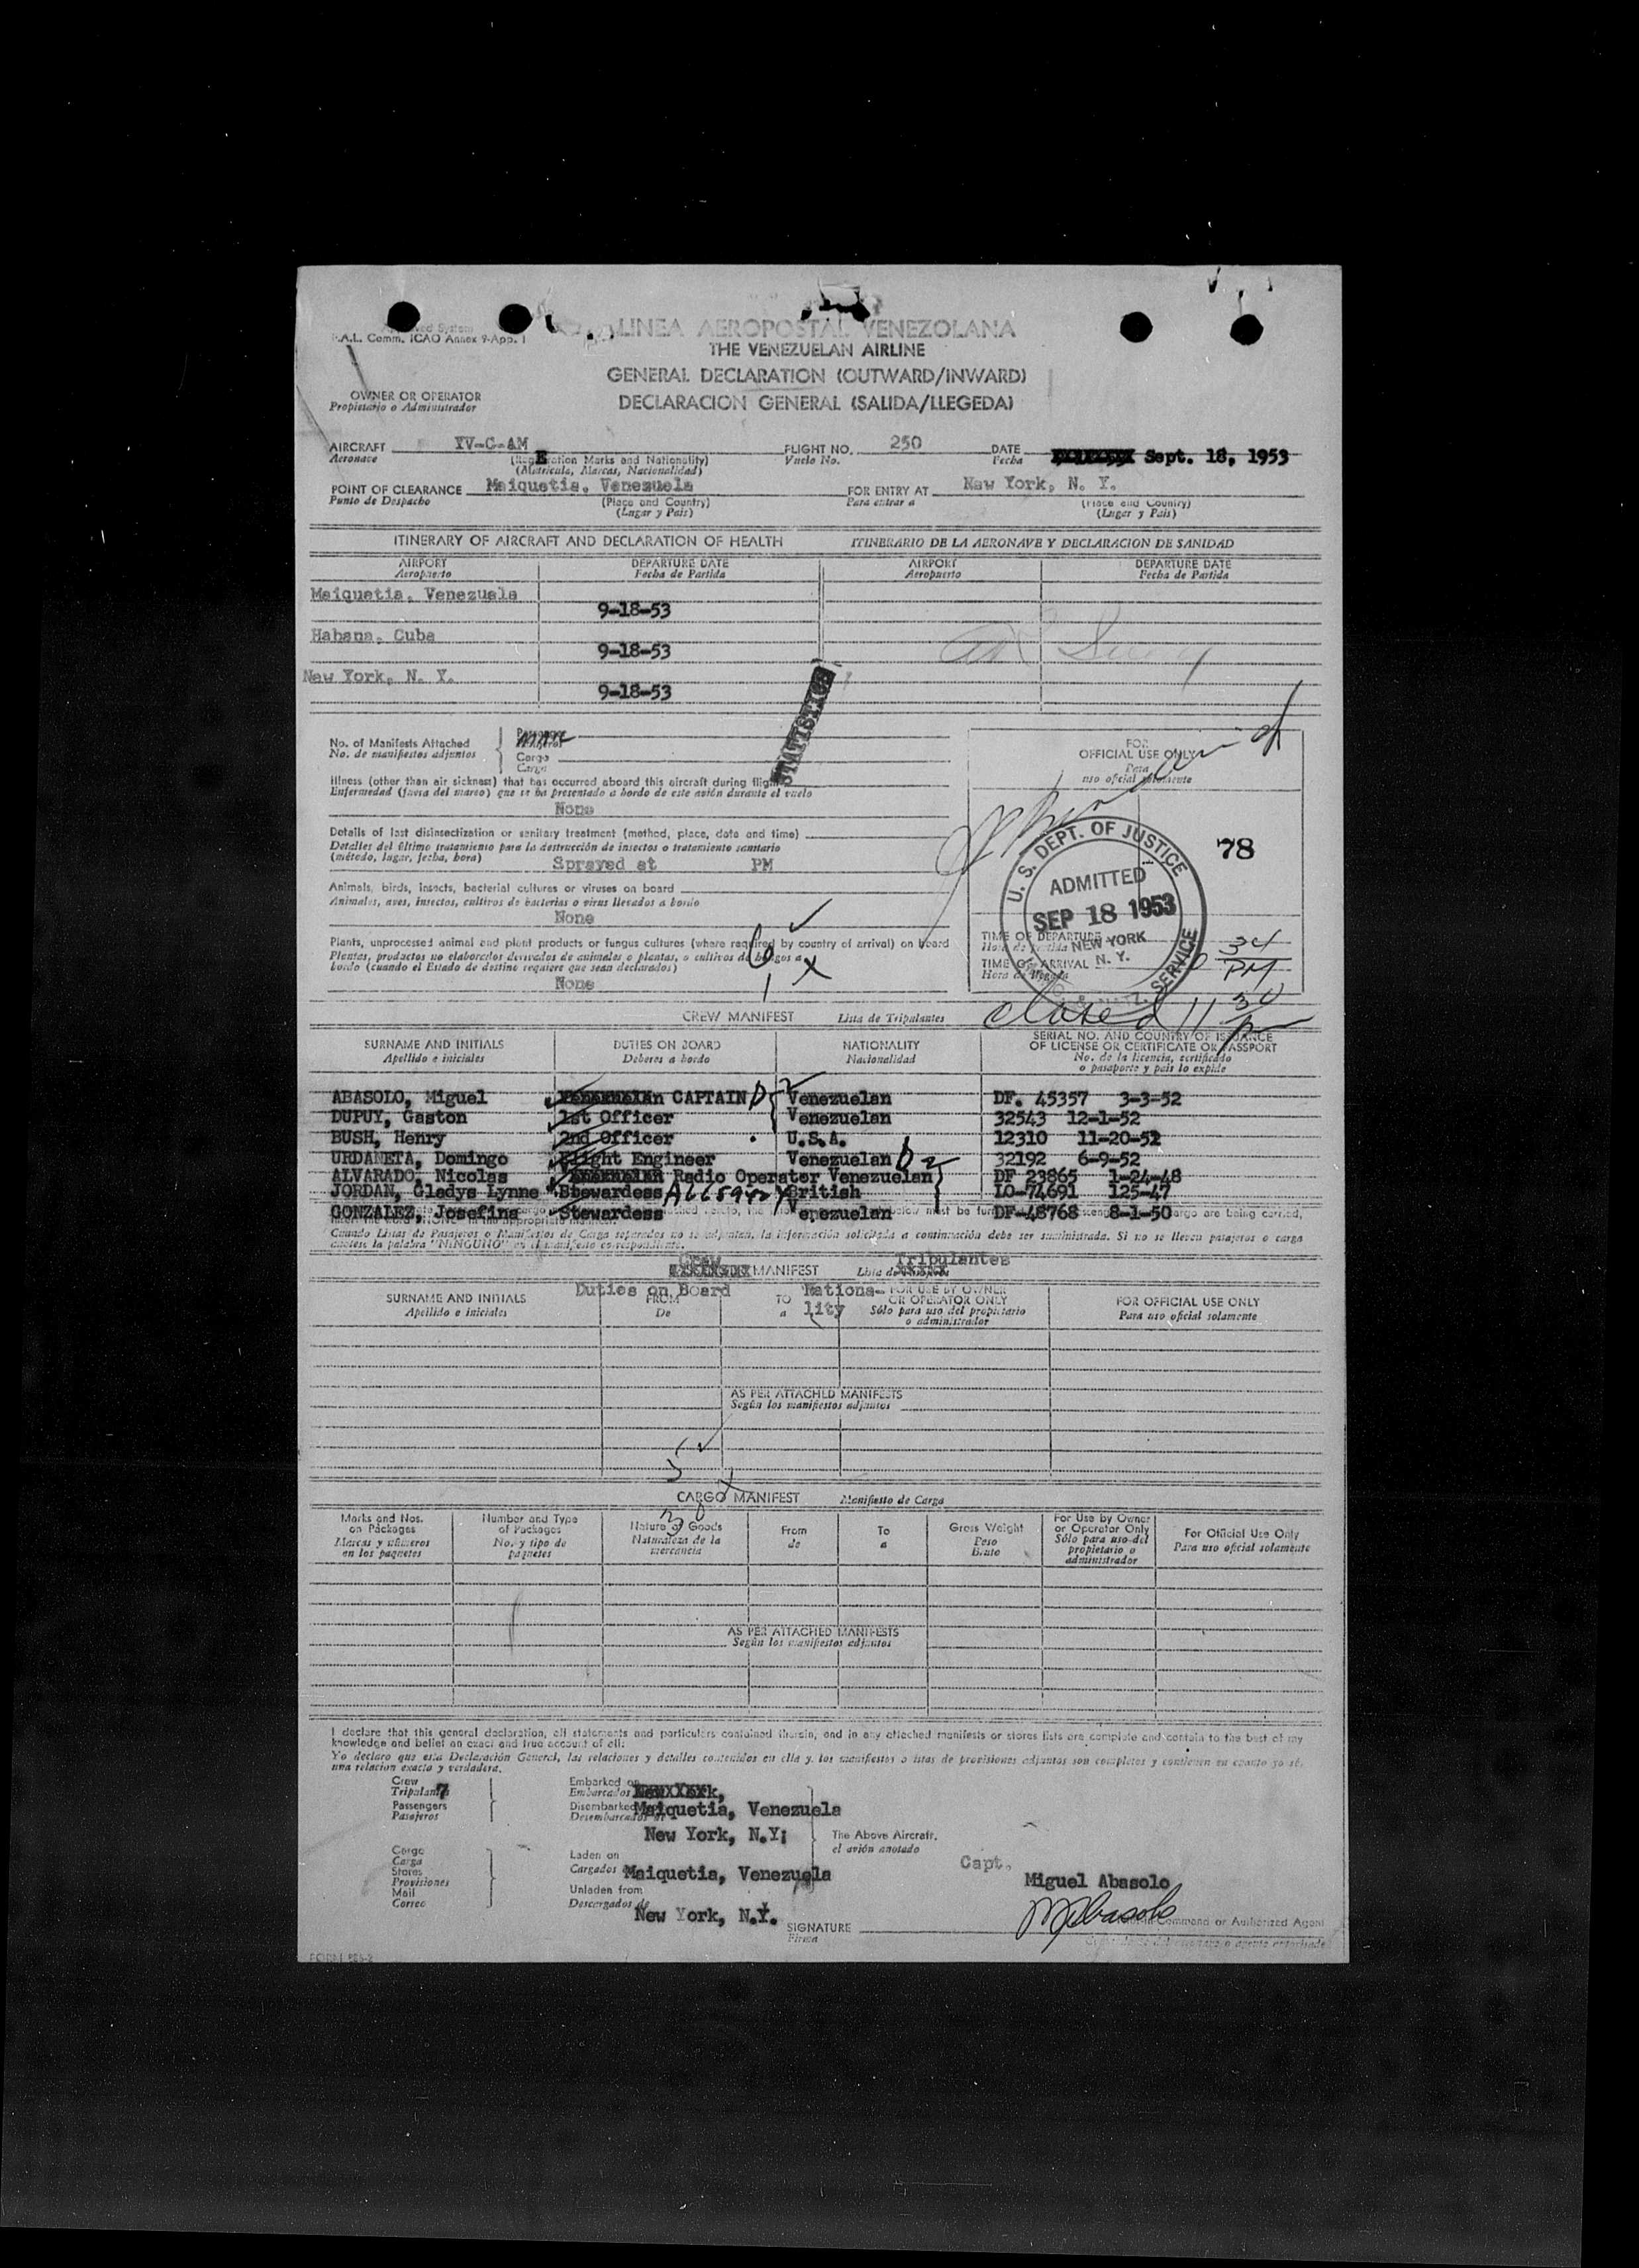 LINEA AEROPOSTAL VENEZOLANA
P.A.L. Comm. ICAO Annex 9-App. 1
THE VENEZUELAN AIRLINE
GENERAL DECLARATION (OUTWARD/INWARD)
DECLARACION GENERAL (SALIDA/LLEGEDA)
OWNER OR OPERATOR
Propietario o Administrador
AIRCRAFT YV-C-AM FLIGHT NO. 250 DATE Sept. 18, 1953
Aeronave Vuelo No. Fecha
Marks and Nationality)
(Matricula, Marcas, Nacionalidad)
POINT OF CLEARANCE Maiquetia, Venezuela FOR ENTRY AT New York, N. Y.
Punto de Despacho (Place and Country) Para entrar a (Place and Country)
(Lugar y Pais) (Lugar y Pais)
ITINERARY OF AIRCRAFT AND DECLARATION OF HEALTH ITINERARIO DE LA AERONAVE Y DECLARACION DE SANIDAD
AIRPORT DEPARTURE DATE AIRPORT DEPARTURE DATE
Aeropuerto Fecha de Partida Aeropuerto Fecha de Partida
Maiquetia, Venezuela
9-18-53
Habana, Cuba
9-18-53
New York, N. Y.
9-18-53
STATISTICS
No. of Manifests Attached
No. de manifiestos adjuntos
Cargo
Carga
FOR
OFFICIAL USE ONLY
Para
uso oficial solamente
Illness (other than air sickness) that has occurred aboard this aircraft during flight
Enfermedad (fuera del mareo) que se ha presentado a bordo de este avión durante el vuelo
None
Details of last disinsectization or sanitary treatment (method, place, date and time)
Detalles del último tratamiento para la destrucción de insectos o tratamiento sanitario
(método, lugar, fecha, hora)
Sprayed at PM
78
U. S. DEPT. OF JUSTICE
ADMITTED
SEP 18 1953
NEW YORK
N. Y.
SERVICE
Animals, birds, insects, bacterial cultures or viruses on board
Animales, aves, insectos, cultivos de bacterias o virus llevados a bordo
None
Plants, unprocessed animal and plant products or fungus cultures (where required by country of arrival) on board
Plantas, productos no elaborados derivados de animales o plantas, o cultivos de hongos a
bordo (cuando el Estado de destino requiere que sean declarados)
None
TIME OF DEPARTURE
TIME OF ARRIVAL
34
PM
closed 11 30
CREW MANIFEST Lista de Tripulantes
SURNAME AND INITIALS DUTIES ON BOARD NATIONALITY SERIAL NO. AND COUNTRY OF ISSUANCE
OF LICENSE OR CERTIFICATE OR PASSPORT
Apellido e iniciales Deberes a bordo Nacionalidad No. de la licencia, certificado
o pasaporte y pais lo expide
ABASOLO, Miguel CAPTAIN Venezuelan DF. 45357 3-3-52
DUPUY, Gaston 1st Officer Venezuelan 32543 12-1-52
BUSH, Henry 2nd Officer U.S.A. 12310 11-20-52
URDANETA, Domingo Flight Engineer Venezuelan 32192 6-9-52
ALVARADO, Nicolas Radio Operator Venezuelan DF 23865 1-24-48
JORDAN, Gladys Lynne Stewardess British LO-74691 125-47
GONZALEZ, Josefina Stewardess Venezuelan DF-48768 8-1-50
Cuando Listas de Pasajeros o Manifiestos de Carga separados no se adjuntan, la información solicitada a continuación debe ser suministrada. Si no se lleven pasajeros o carga
anotese la palabra "NINGUNO" en el manifiesto correspondiente.
Crew Tripulantes
MANIFEST Lista de
Duties on Board Nationa-
lity
SURNAME AND INITIALS FROM TO FOR USE BY OWNER
OR OPERATOR ONLY FOR OFFICIAL USE ONLY
Apellido e iniciales De a Sólo para uso del propietario
o administrador Para uso oficial solamente
AS PER ATTACHED MANIFESTS
Según los manifiestos adjuntos
CARGO MANIFEST Manifiesto de Carga
Marks and Nos.
on Packages
Marcas y números
en los paquetes
Number and Type
of Packages
No. y tipo de
paquetes
Nature of Goods
Naturaleza de la
mercancia
From
de
To
a
Gross Weight
Peso
Bruto
For Use by Owner
or Operator Only
Sólo para uso del
propietario o
administrador
For Official Use Only
Para uso oficial solamente
AS PER ATTACHED MANIFESTS
Según los manifiestos adjuntos
I declare that this general declaration, all statements and particulars contained therein, and in any attached manifests or stores lists are complete and contain to the best of my
knowledge and belief an exact and true account of all:
Yo declaro que esta Declaración General, las relaciones y detalles contenidos en ella y los manifiestos o listas de provisiones adjuntos son completos y contienen en cuanto yo sé,
una relacion exacta y verdadera.
Crew
7
Passengers
Pasajeros
Embarked on
Embarcados
Disembarked
Maiquetia, Venezuela
New York, N.Y;
The Above Aircraft.
el avión anotado
Cargo
Carga
Stores
Provisiones
Mail
Correo
Laden on
Cargados Maiquetia, Venezuela
Unladen from
Descargados de
New York, N.Y.
Capt.
Miguel Abasolo
MAbasolo
SIGNATURE
Firma
Command or Authorized Agent